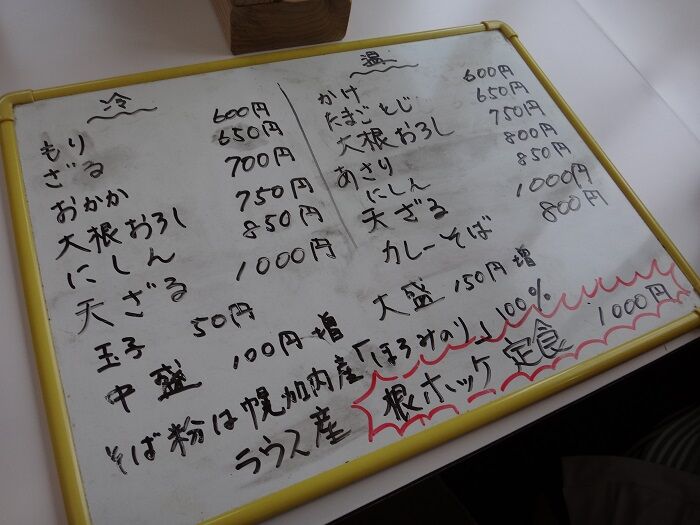 冷
もり 600円
ざる 650円
おかか 700円
大根おろし 750円
にしん 850円
天ざる 1000円
玉子 50円
中盛 100円増
温
かけ 600円
たまごとじ 650円
大根おろし 750円
あさり 800円
にしん 850円
天ざる 1000円
カレーそば 800円
大盛 150円増
そば粉は幌加内産「ほろみのり」100%
ラウス産 根ホッケ定食 1000円